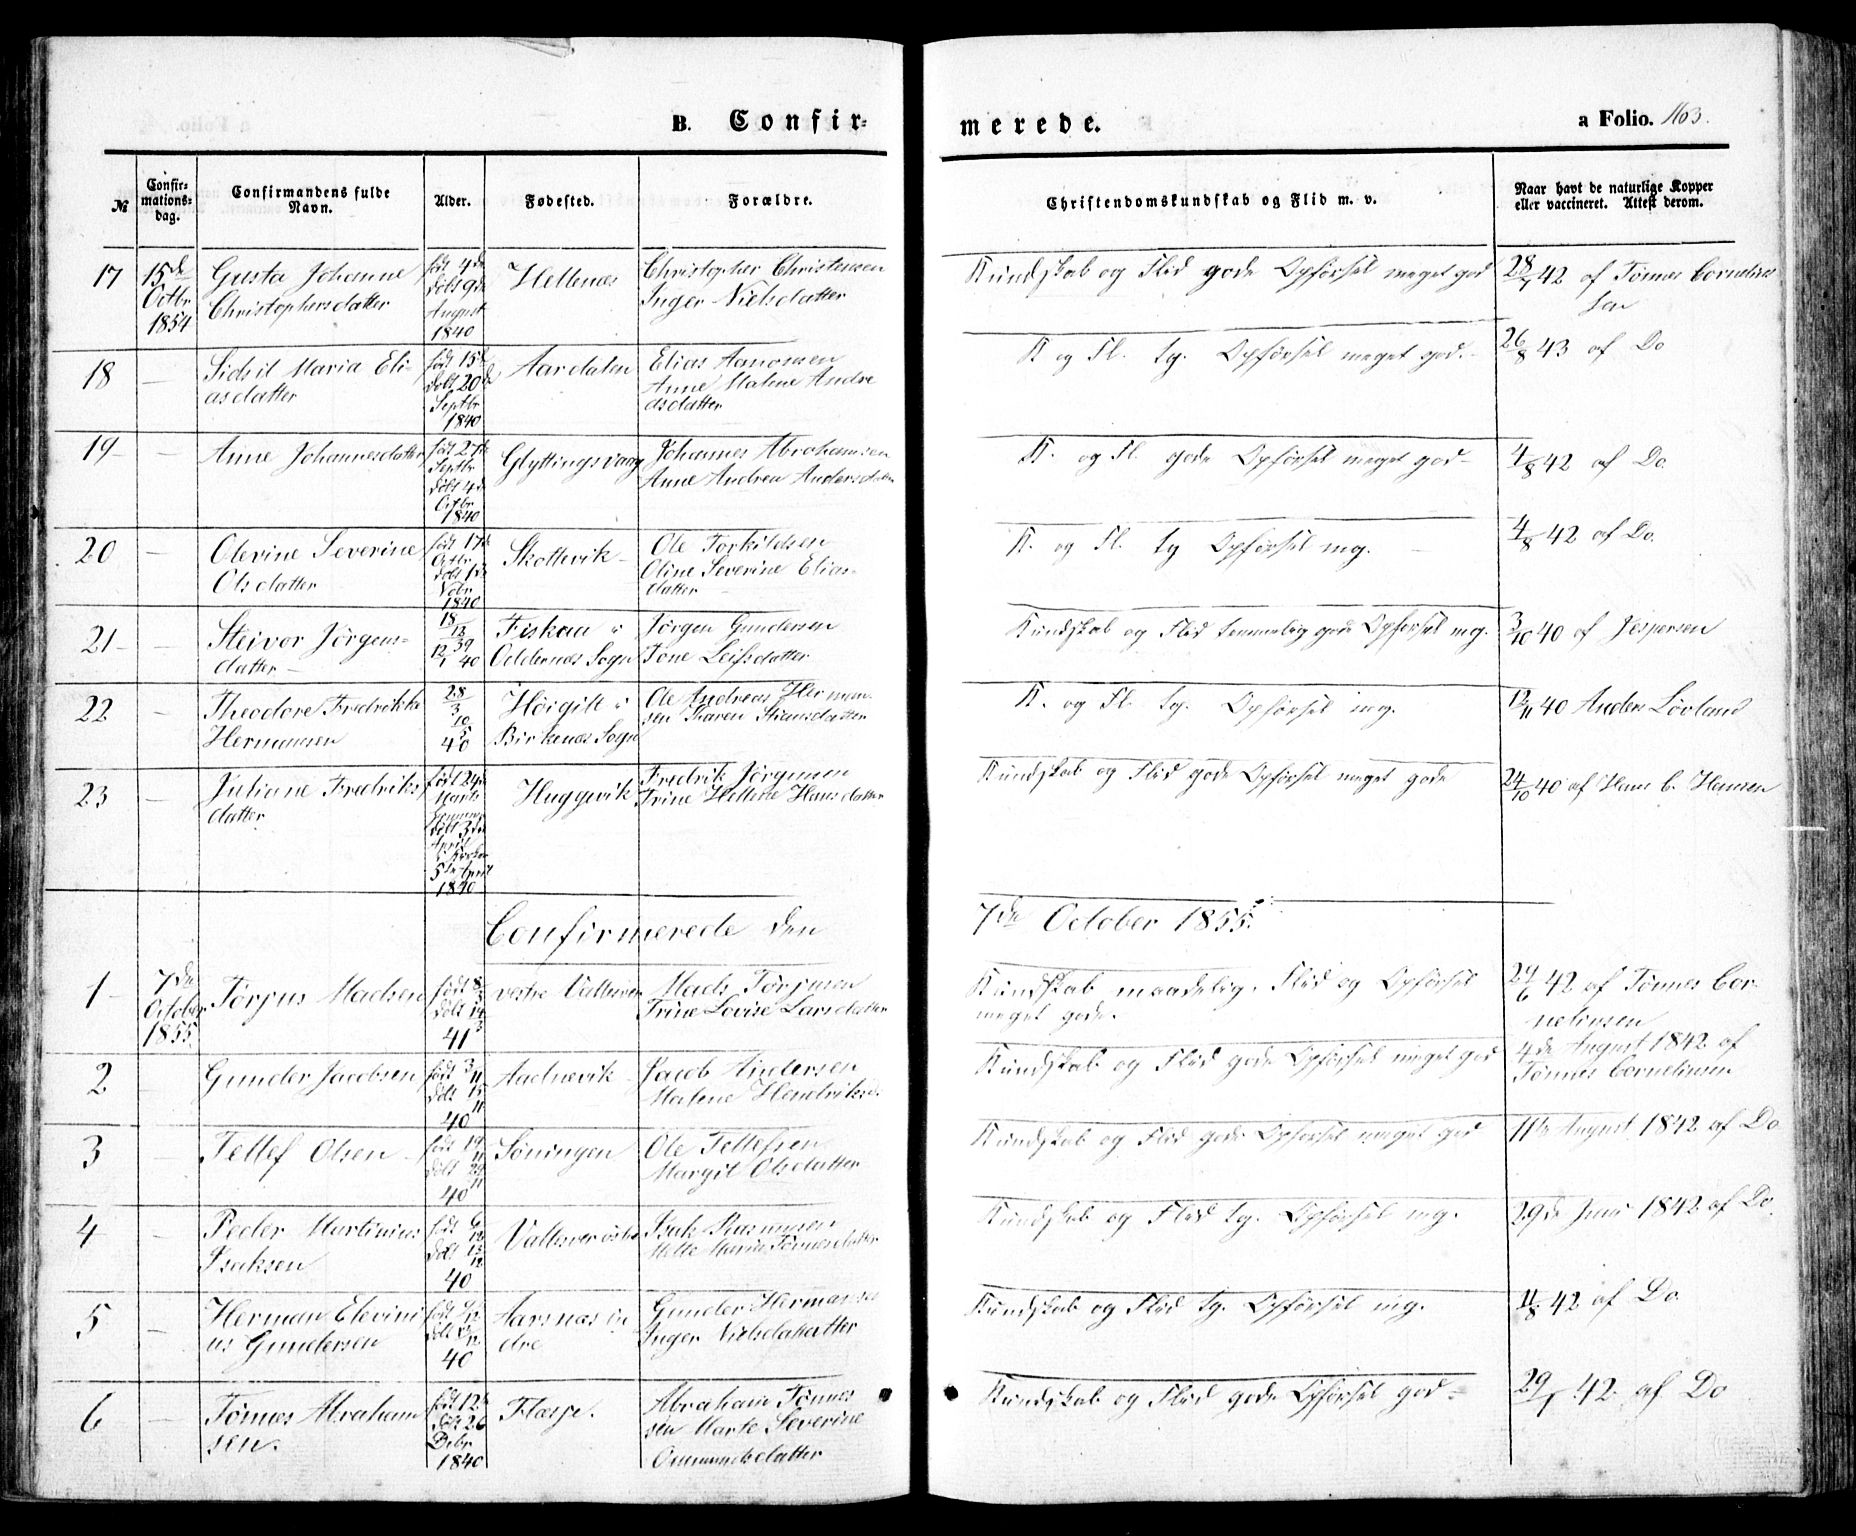 B. Confir-
merede.
a Folio. 163.
№
Confir-
mations-
dag.
Confirmandens fulde
Navn.
Alder.
Fødested.
Forældre.
Christendomskundskab og Flid m. v.
Naar havt de naturlige Kopper
eller vaccineret. Attest derom.
17 15de Octbr 1854
Gusta Johanne
Christophersdatter
født 4de
døbt 9de
August
1840
Hellenæs
Christopher Christensen
Inger Nielsdatter
Kundskab og Flid gode Opførsel meget god
28/7 42 af Tønnes Cornelius
sen
18 —
Sidsil Maria Eli
asdatter
født 15de
døbt 20de
Septbr
1840
Aardalen
Elias Aanonsen
Anne Malene Andre
asdatter
K og Fl. tg. Opførsel meget god.
26/8 43 af Do
19 —
Anne Johannesdatter
født 27de
Septbr
døbt 4de
Octbr
1840
Glyttingsvaag
Johannes Abrahamsen
Anne Andrea Andersdatter
K. og Fl. gode Opførsel meget god
4/8 42 af Do.
20 —
Olevine Severine
Olsdatter
født 17de
Octbr
døbt 1de
Nvbr
1840
Skottevik
Ole Torkildsen
Oline Severine Elias-
datter
K. og Fl. tg Opførsel mg.
4/8 42 af Do.
21 —
Steivor Jörgens-
datter
18/12 39
12/1 40
Fiskaa i
Oddernæs Sogn
Jörgen Gundersen
Tone Leifsdatter
Kundskab og Flid temmelig gode Opførsel mg.
3/10 40 af Jespersen
22 —
Theodore Fredrikke
Hermansen
28/3
10/5
40
i
Birkenæs Sogn
Ole Andreas Herman
sen Karen Stiansdatter
K. og Fl. tg. Opførsel mg.
12/11 40 Anders Lövland
23 —
Juliane Fredriks
datter
født 24de
Marts
hjemme
døbt 3de
April
i Kirken
5te April
1840
Huggevik
Fredrik Jörgensen
Trine Hellene Hansdatter
Kundskab og Flid gode Opførsel meget gode
24/10 40 af Hans C. Hansen
Confirmerede den
7de October 1855.
1 7de October 1855
Törjus Madsen
født 8/3
døbt 14/3
41
vestre Vallesver
Mads Törjusen
Trine Lovise Larsdatter
Kundskab maadelig. Flid og Opførsel
meget gode.
24/6 42 af Tönnes Cor
neliusen
2 —
Gunder Jacobsen
født 3/11
døbt 15/11
40
Aadnevik
Jacob Andersen
Malene Hendriksd.
Kundskab og Flid gode Opførsel meget god
4de August 1842 af
Tönnes Corneliusen
3 —
Tellef Olsen
født 19/11
døbt 29/11
40
Söningen
Ole Tellefsen
Margit Olsdatter
Kundskab og Flid gode Opførsel meget god
11te August 1842 af Do
4 —
Peder Martinius
Isaksen
født 6/12
døbt 13/12
40
Vallesver östre
Isak Rasmusen
Mette Maria Tönnesdatter
Kundskab og Flid tg. Opførsel mg.
29de Juni 1842 af Do.
5 —
Herman Elevini
us Gundersen
40
Aarsnæs in
dre
Gunder Hermansen
Inger Nielsdatter
Kundskab og Flid tg. Opførsel mg.
11/8 42 af Do.
6 —
Tönnes Abraham
sen.
født 12te
døbt 26
Debr
1840
Flærje.
Abraham Tönnes
sen Marte Severine
Ommundsdatter
Kundskab og Flid gode Opførsel god
29/1 42 af Do